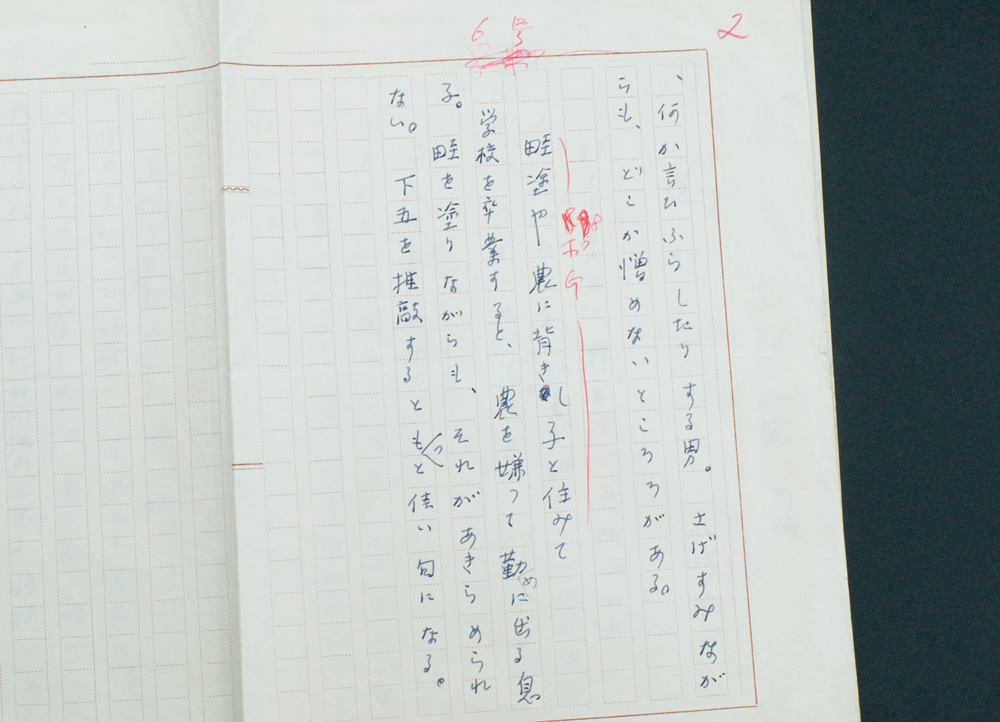 2
、何か言ひふらしたりする男。さげすみなが
らも、どこか憎めないところがある。
ポG
畦塗や農に背きし子と住みて
学校を卒業すると、農を嫌つて勤めに出る息
子。畦を塗りながらも、それがあきらめられ
ない。下五を推敲するともつと佳い句になる。